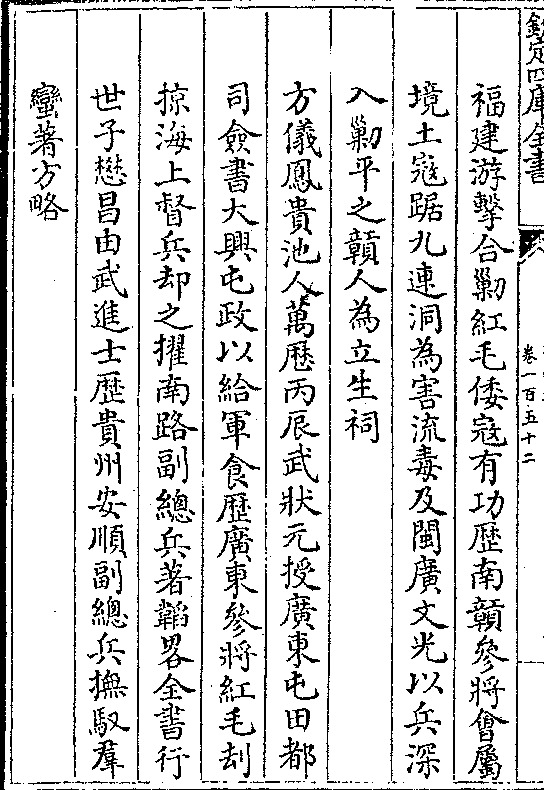 欽定四庫全書
卷一百五十二
福建游擊合勦紅毛倭寇有功歷南贛參將會屬
境土寇踞九連洞為害流毒及閩廣文光以兵深
入勦平之贛人為立生祠
方儀鳳貴池人萬歷丙辰武狀元授廣東屯田都
司僉書大興屯政以給軍食歷廣東參將紅毛刦
掠海上督兵却之擢南路副總兵著韜畧全書行
世子懋昌由武進士歷貴州安順副總兵撫馭羣
蠻著方略